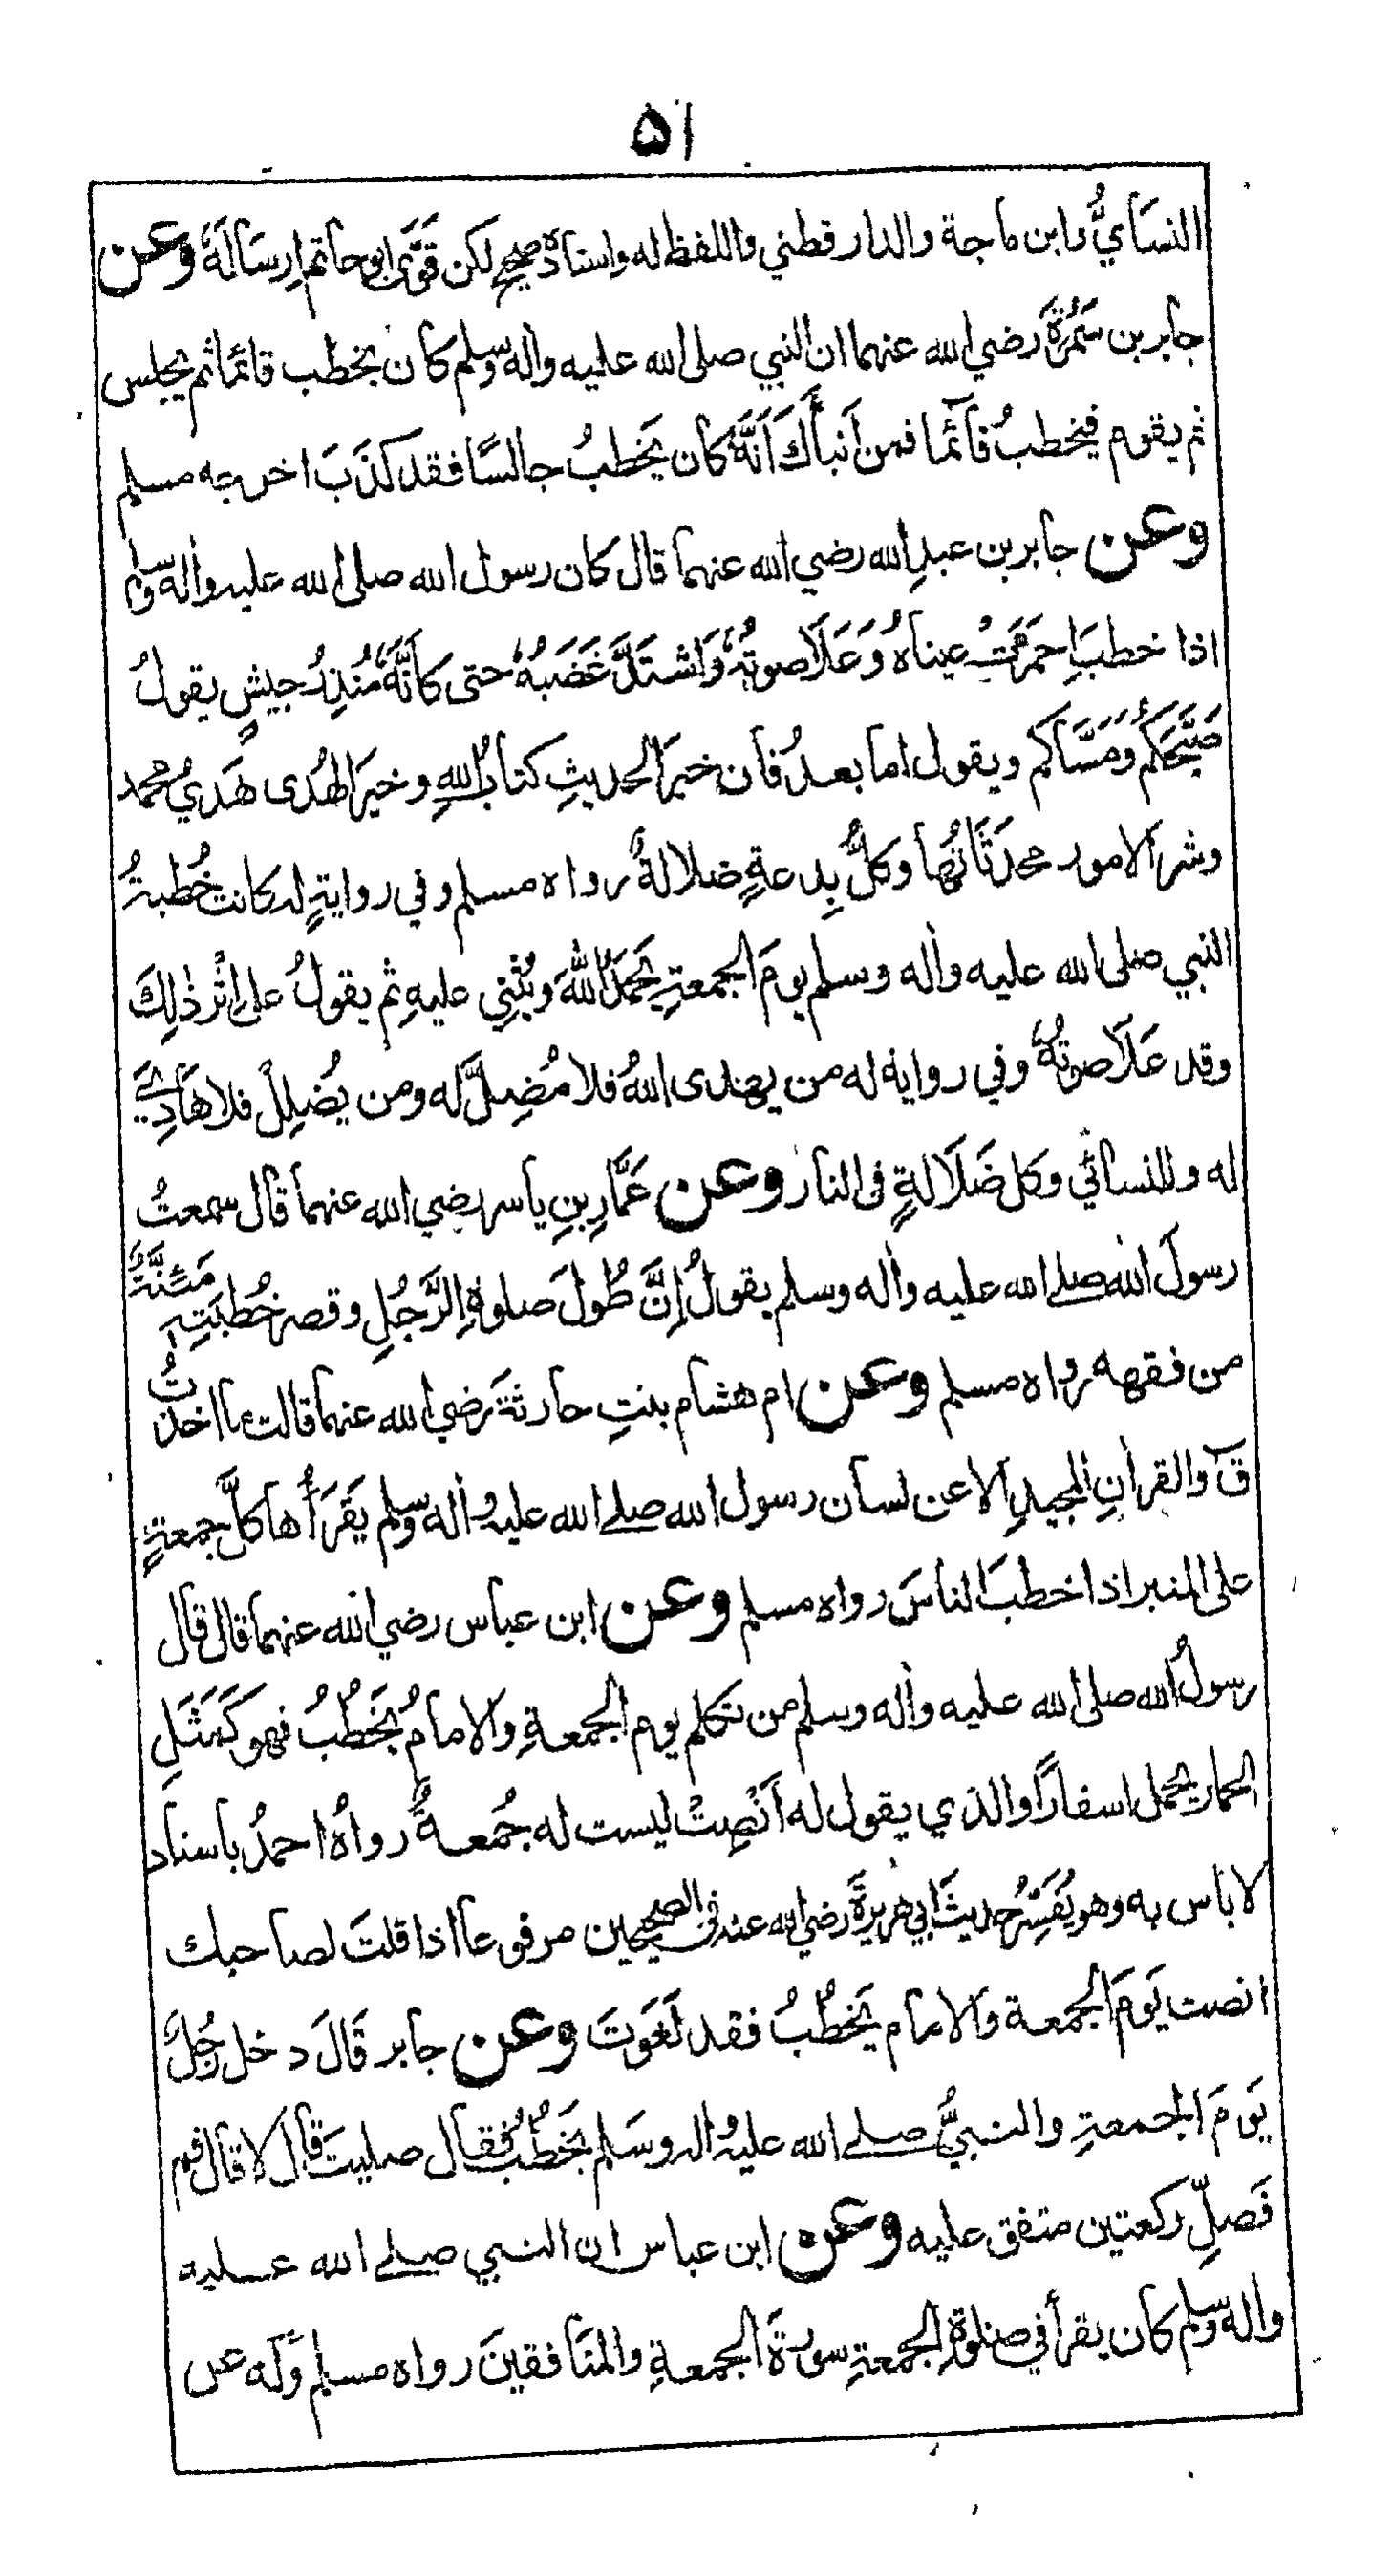 ٥١
النسَايُّ وابن ماجة والدار قطني واللفظ له واسناده صحيح لكن قَوَّى ابو حاتم اِرسَالَهُ وعن
جابر بن سَمُرَةَ رضي الله عنهما ان النبي صلى الله عليه واٰله وسلم كان يخطب قائمًا ثم يجلس
ثم يقوم فيخطبُ قآئمًا فمن اَنبأَكَ اَنَّهُ كان يَخطبُ جالسًا فقد كذَبَ اخرجه مسلم
وعن جابر بن عبدِ الله رضي الله عنهما قال كان رسول الله صلى الله عليه واٰله وسلم
اذا خطبَ اِحمَرَّتْ عيناهُ وَعَلَا صوتُهُ وَاشتَدَّ غَضَبُهُ حتى كَاَنَّهُ مُنذِرُ جيشٍ يقولُ
صَبَّحَكُم وَمَسَّاكم ويقول اما بعدُ فان خيرَ الحديثِ كتابُ اللهِ وخيرَ الهُدى هَديُ محمد
وشرَ الامور محدَثَاتُها وكلُّ بِدعةٍ ضلالةٌ رواه مسلم وفي روايةٍ له كانت خُطبةُ
النبي صلى الله عليه واٰله وسلم يومَ الجمعةِ يَحمَدُ اللهَ ويُثنِي عليهِ ثم يقولُ على اِثْرِ ذٰلِكَ
وقد عَلَا صوتُهُ وفي رواية له من يهدى اللهُ فلا مُضِلَّ له ومن يُضلِلْ فلا هَادِيَ
له وللنسائي وكل ضَلَالةٍ فى النار وعن عَمَّارِ بنِ ياسر رضي الله عنهما قال سمعتُ
رسولَ الله صلے الله عليه واٰله وسلم يقولُ اِنَّ طُولَ صلوةِ الرَّجُلِ وقصر خُطبَتِهٖ مَئِنَّةٌ
من فقهه رواه مسلم وعن ام هشام بنتِ حارثةَ رضي الله عنهما قالت ما اخذتُ
قٓ والقراٰنِ المجيدِ الا عن لسان رسول الله صلے الله عليه واٰله وسلم يَقرَأُها كلَّ جمعةٍ
على المنبر اذا خطبَ الناسَ رواه مسلم وعن ابن عباس رضي الله عنهما قال قال
رسولُ الله صلى الله عليه واٰله وسلم من تكلم يوم الجمعةِ والامامُ يَخطُبُ فهو كَمَثَلِ
الحمار يحمل اسفارًا والذي يقول له اَنْصِتْ ليست له جُمعةٌ رواهُ احمدُ باسناد
لا باس به وهو يُفَسِّرُ حديثَ ابي هريرةَ رضي الله عنه فى الصحيحين مرفوعا اذا قلتَ لصاحبك
انصت يَومَ الجمعة والامام يَخطُبُ فقد لَغَوتَ وعن جابر قَالَ دخل رجُلٌ
يَومَ الجمعةِ والنبيُّ صلے الله عليه واله وسَلم يَخطُبُ فقال صليتَ قال لا قال قم
فَصلِّ ركعتين متفق عليه وعن ابن عباس ان النبي صلے الله عليه
واٰله وسلم كان يقرأ في صلوةِ الجمعةِ سورةَ الجمعةِ والمنَافقينَ رواه مسلم وَلَه عن